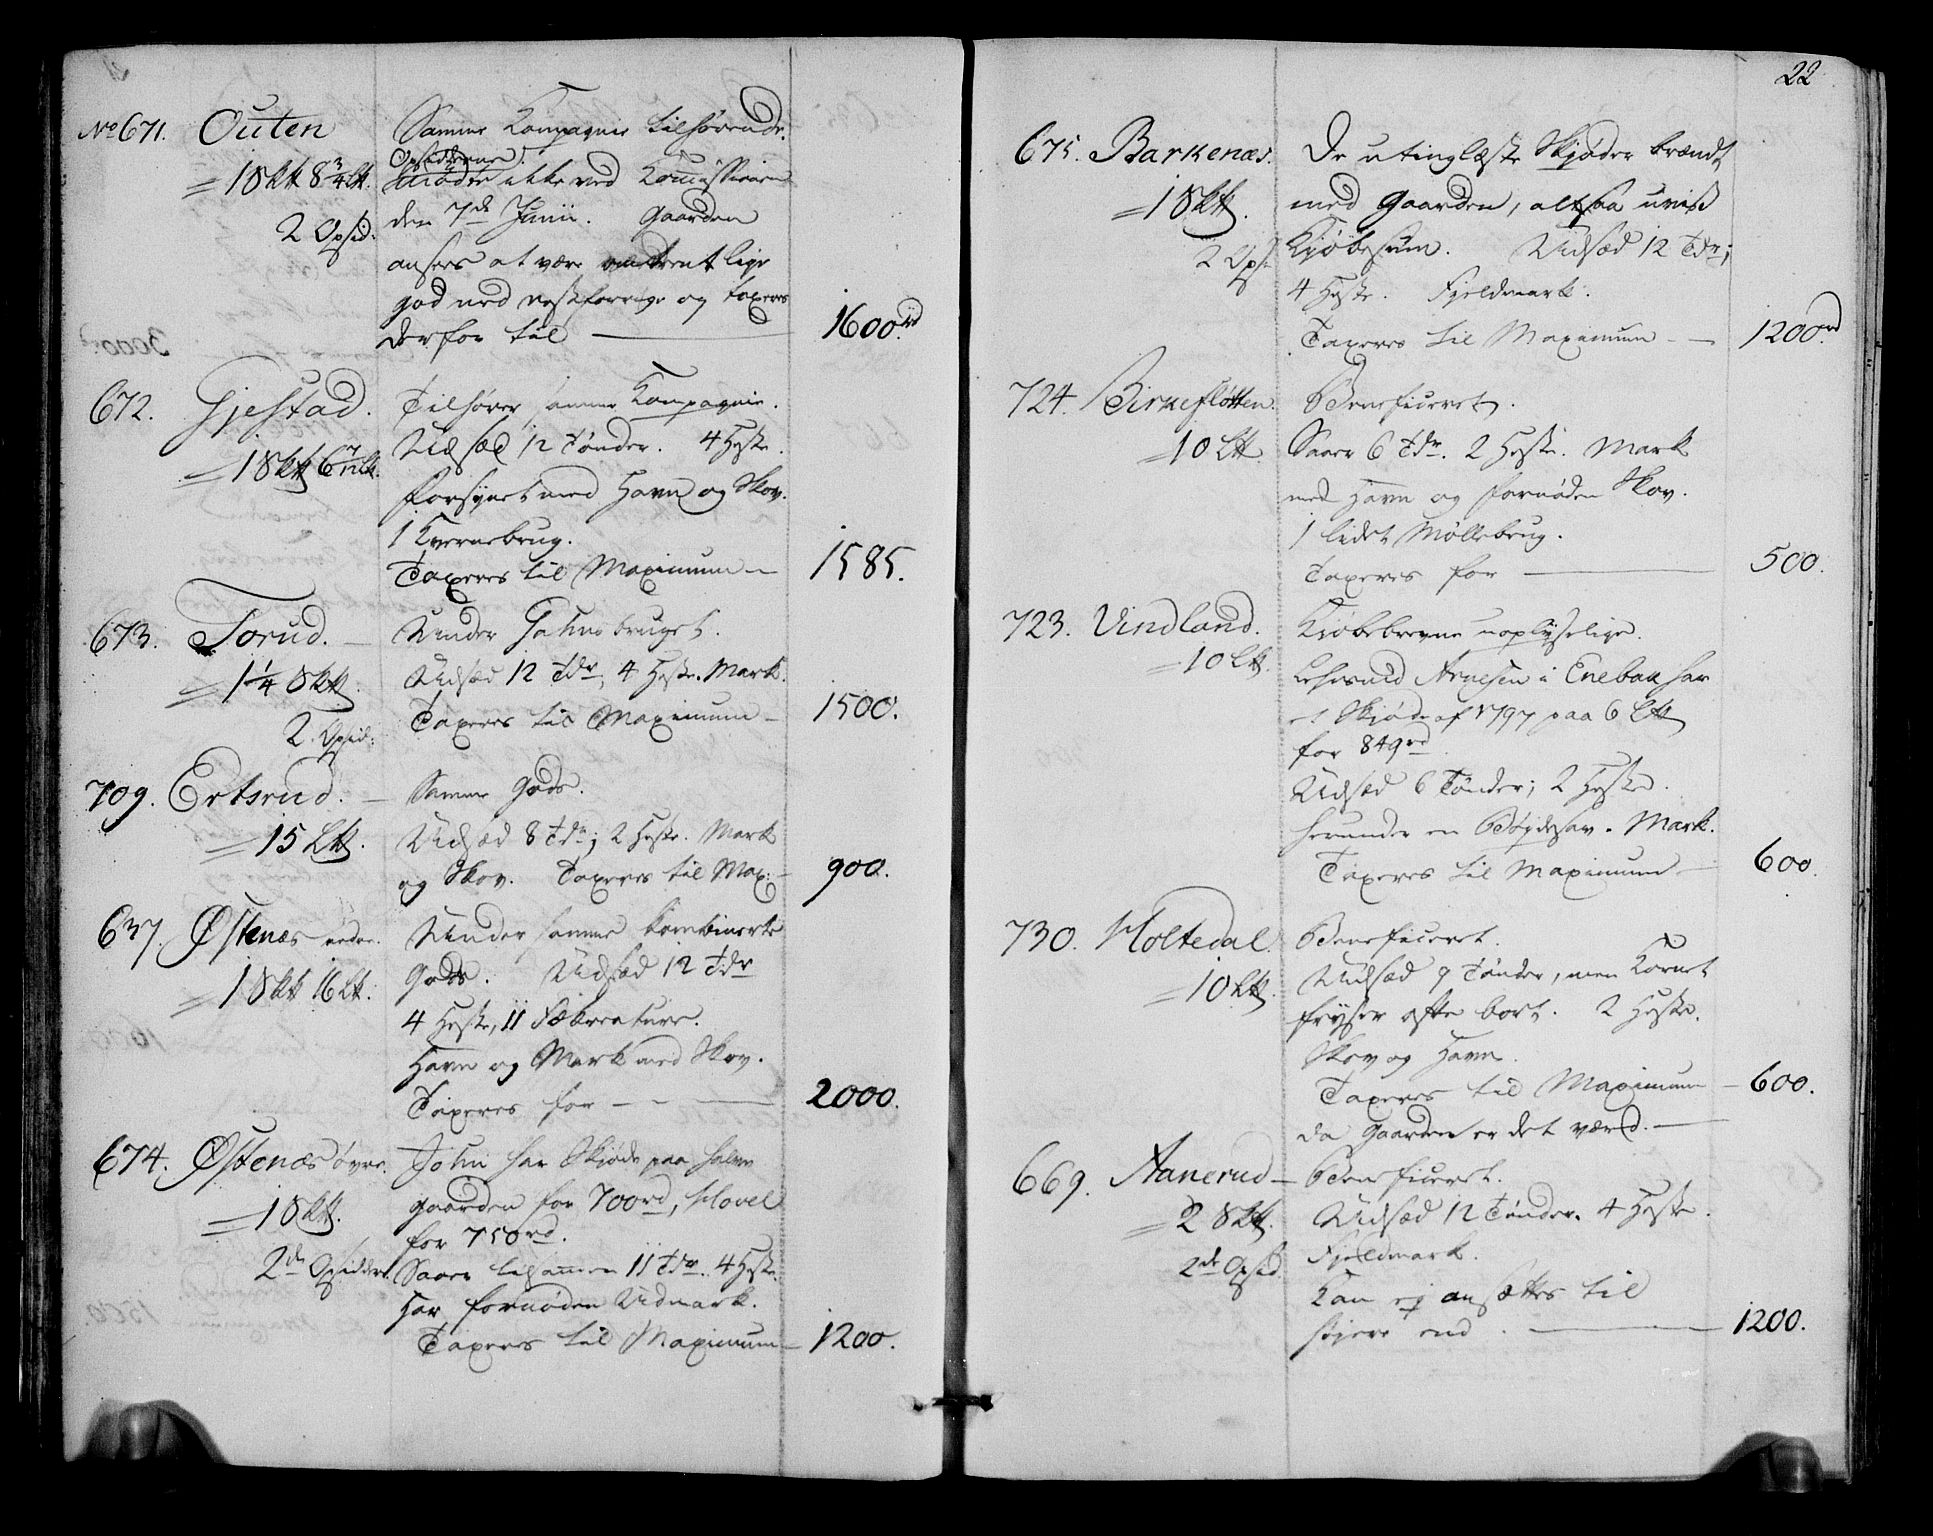 No 671. Outen
= 1 Sk℔ 8 3/4 L℔.
2 Opsid:
Samme Compagnie tilhørende.
Opsidderne
mødte ikke ved Comissionen
den 7de Junii. Gaarden
ansees at være omtrent lige
god med nestforrige og taxeres
derfor til —
1600rd
672. Gjestad.
= 1 Sk℔ 6 7/12 L℔.
Tilhører samme Compagnie.
Udsæd 12 Tønder. 4 Heste.
forsynet med Havn og Skov.
1 Kvernebrug.
Taxeres til Maximum —
1585.
673. Torud. —
= 1 1/4 Sk℔.
2. Opsid:
Under bruget.
Udsæd 12 Tdr, 4 Heste. Mark.
Taxeres til Maximum —
1500.
709. Ertsrud. —
= 15 L℔.
Samme Gods.
Udsæd 8 Tdr; 2 Heste. Mark
og Skov. Taxeres til Max: —
900.
637. Østenæs nedre.
= 1 Sk℔ 16 L℔.
Under samme kombinerte
Gods. Udsæd 12 Tdr
4 Heste, 11 Fækreature.
Havn og Mark med Skov.
Taxeres for — — —
2000.
674. Østenæs øvre.
= 1 Sk℔.
2de Opsiddere.
John har Skjøde paa halve
gaarden for 700rd, Hovel
for 750rd.
Saaer tilsammen 11 Tdr. 4 Heste.
Har fornøden Udmark.
Taxeres til Maximum —
1200.
22
675. Barkenæs.
= 1 Sk℔.
2 Ops.
De utinglæste Skjøder brændt
med Gaarden, altsaa uvis
Kjøbesum. Udsæd 12 Tdr;
4 Heste. Fjeldmark.
Taxeres til Maximum — —
1200rd
724. Birkefløtten.
= 10 L℔.
Beneficeret.
Saaer 6 Tdr. 2 Heste. Mark
med Havn og fornøden Skov.
1 lidet Møllebrug.
Taxeres for —
500.
723. Vindland.
= 10 L℔.
Kjøbebrevne uoplyselige.
Arnesen i Enebak har
et Skjøde af 1797 paa 6 L℔
for 849rd
Udsæd 6 Tønder; 2 Heste.
herunder en Bøgdesav. Mark.
Taxeres til Maximum —
600.
730. Holtedal.
= 10 L℔.
Beneficeret.
Udsæd 9 Tønder, men Kornet
fryser ofte bort. 2 Heste.
Skov og Havn.
Taxeres til Maximum —
da Gaarden er det værd. —
600.
669. Aanerud —
= 2 Sk℔.
2de Opsid.
Beneficeret.
Udsæd 12 Tønder. 4 Heste.
Fjeldmark.
Kan ej ansættes til
højere end . —
1200.